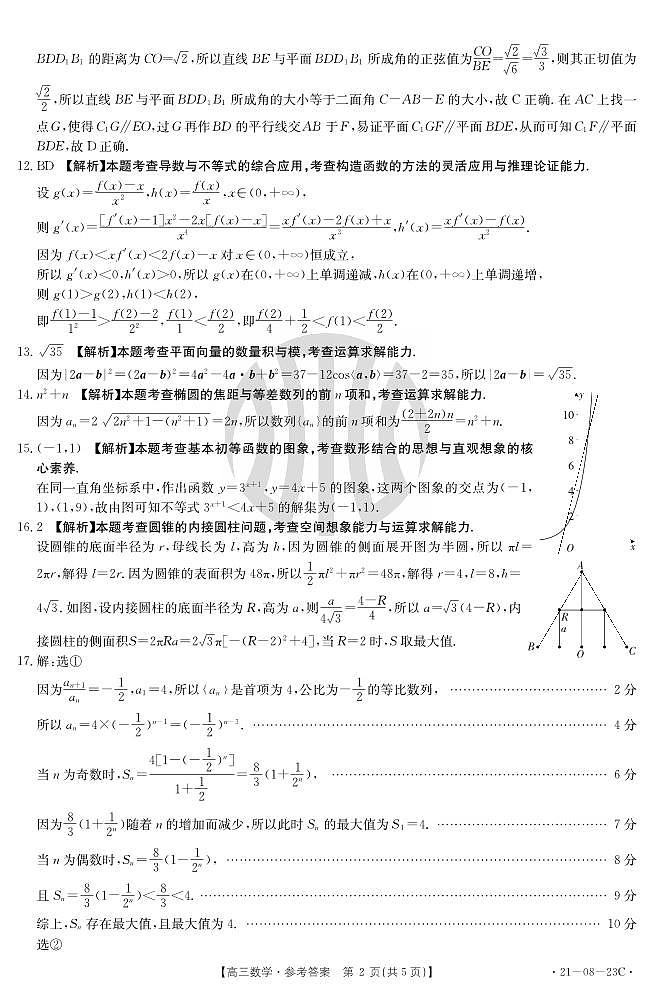 BDD₁B₁ 的距离为 CO=√2,所以直线 BE 与平面 BDD₁B₁ 所成角的正弦值为 CO/BE=√2/√6=√3/3,则其正切值为
√2/2,所以直线 BE 与平面 BDD₁B₁ 所成角的大小等于二面角 C-AB-E 的大小,故 C 正确. 在 AC 上找一
点 G,使得 C₁G∥EO,过 G 再作 BD 的平行线交 AB 于 F,易证平面 C₁GF∥平面 BDE,从而可知 C₁F∥平面
BDE,故 D 正确.
12. BD 【解析】本题考查导数与不等式的综合应用,考查构造函数的方法的灵活应用与推理论证能力.
设 g(x)=(f(x)-x)/x²,h(x)=f(x)/x,x∈(0,+∞),
则 g′(x)=([f′(x)-1]x²-2x[f(x)-x])/x⁴=(xf′(x)-2f(x)+x)/x³,h′(x)=(xf′(x)-f(x))/x².
因为 f(x)<xf′(x)<2f(x)-x 对 x∈(0,+∞)恒成立,
所以 g′(x)<0,h′(x)>0,所以 g(x)在(0,+∞)上单调递减,h(x)在(0,+∞)上单调递增,
则 g(1)>g(2),h(1)<h(2),
即 (f(1)-1)/1²>(f(2)-2)/2²,f(1)/1<f(2)/2,即 f(2)/4+1/2<f(1)<f(2)/2.
13. √35 【解析】本题考查平面向量的数量积与模,考查运算求解能力.
因为|2a-b|²=(2a-b)²=4a²-4a·b+b²=37-12cos⟨a,b⟩=37-2=35,所以|2a-b|=√35.
14. n²+n 【解析】本题考查椭圆的焦距与等差数列的前 n 项和,考查运算求解能力.
因为 aₙ=2√(2n²+1-(n²+1))=2n,所以数列{aₙ}的前 n 项和为 (2+2n)n/2=n²+n.
15. (-1,1) 【解析】本题考查基本初等函数的图象,考查数形结合的思想与直观想象的核
心素养.
在同一直角坐标系中,作出函数 y=3ˣ⁺¹,y=4x+5 的图象,这两个图象的交点为(-1,
1),(1,9),故由图可知不等式 3ˣ⁺¹<4x+5 的解集为(-1,1).
y
10
8
6
4
2
O
x
16. 2 【解析】本题考查圆锥的内接圆柱问题,考查空间想象能力与运算求解能力.
设圆锥的底面半径为 r,母线长为 l,高为 h,因为圆锥的侧面展开图为半圆,所以 πl=
2πr,解得 l=2r. 因为圆锥的表面积为 48π,所以 1/2 πl²+πr²=48π,解得 r=4,l=8,h=
4√3. 如图,设内接圆柱的底面半径为 R,高为 a,则 a/4√3=(4-R)/4,所以 a=√3(4-R),内
接圆柱的侧面积 S=2πRa=2√3π[-(R-2)²+4],当 R=2 时,S 取最大值.
A
R
a
B
O
C
17. 解:选①
因为 aₙ₊₁/aₙ=-1/2,a₁=4,所以{aₙ}是首项为 4,公比为-1/2 的等比数列, …… 2 分
所以 aₙ=4×(-1/2)ⁿ⁻¹=(-1/2)ⁿ⁻³. …… 4 分
当 n 为奇数时,Sₙ=4[1-(-1/2)ⁿ]/(1+1/2)=8/3(1+1/2ⁿ), …… 6 分
因为 8/3(1+1/2ⁿ)随着 n 的增加而减少,所以此时 Sₙ 的最大值为 S₁=4. …… 7 分
当 n 为偶数时,Sₙ=8/3(1-1/2ⁿ), …… 8 分
且 Sₙ=8/3(1-1/2ⁿ)<8/3<4. …… 9 分
综上,Sₙ 存在最大值,且最大值为 4. …… 10 分
选②
【高三数学·参考答案 第 2 页(共 5 页)】
·21-08-23C·